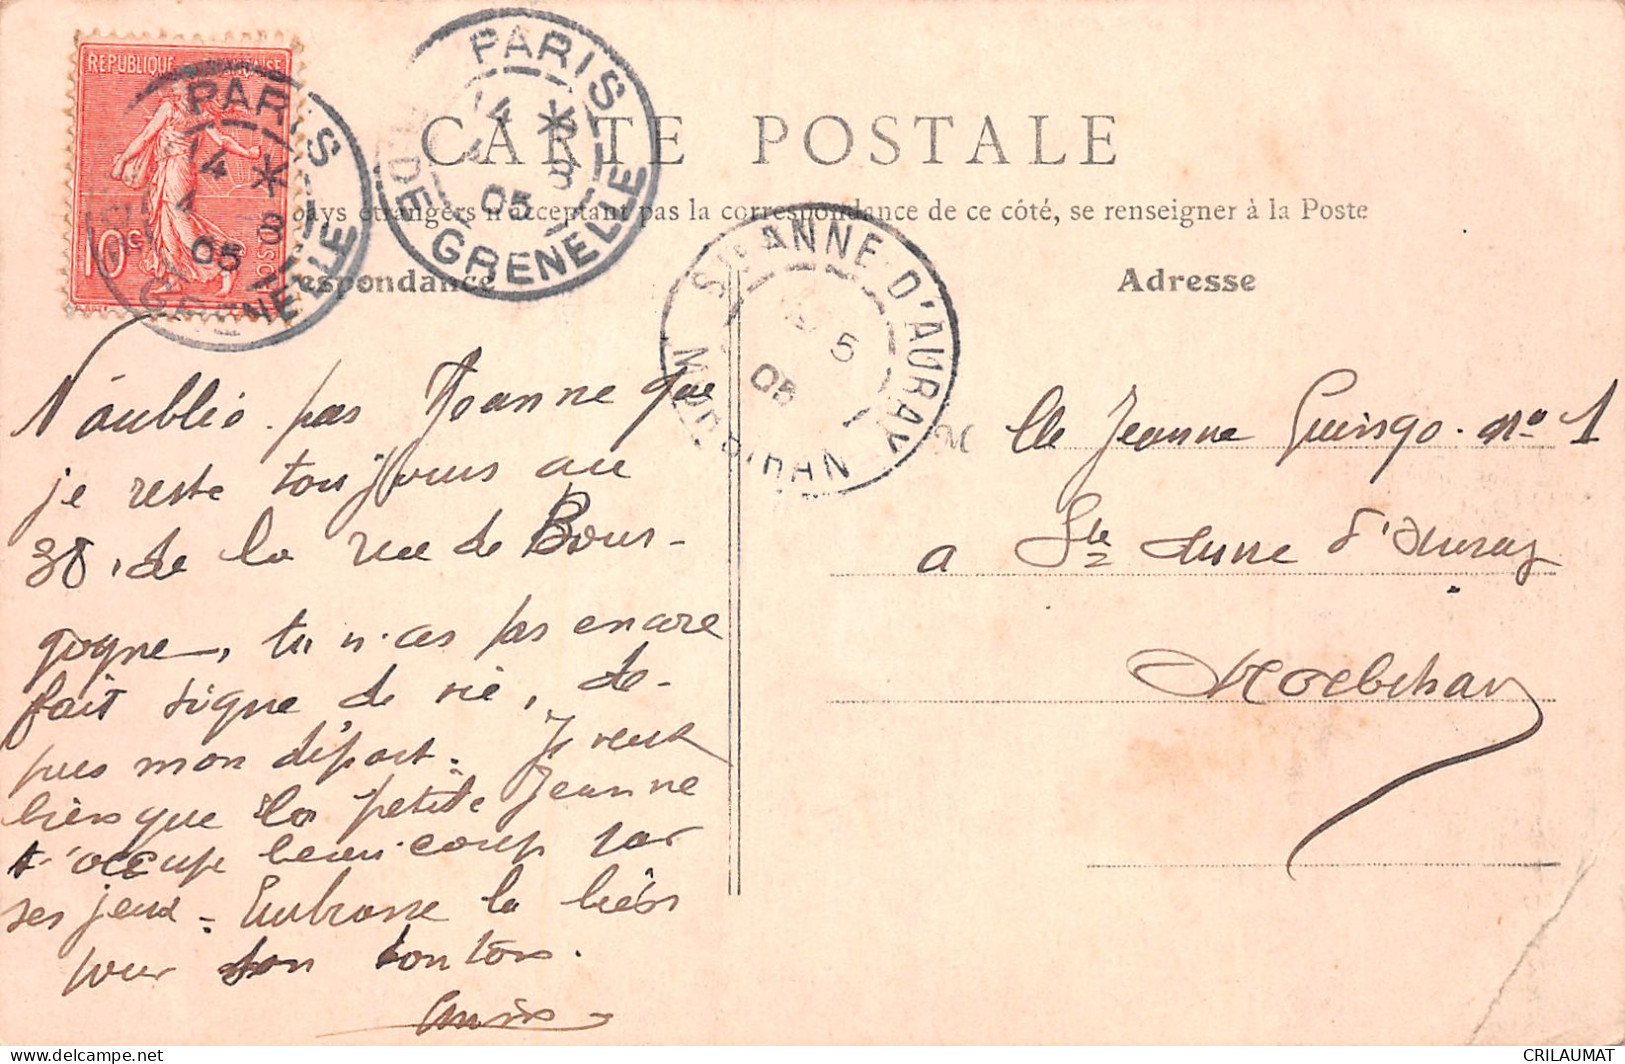 REPUBLIQUE FRANÇAISE
10c
PARIS
14 * 4
05
GRENELLE
PARIS
14 *
05
R. DE GRENELLE
CARTE POSTALE
pays étrangers n'acceptant pas la correspondance de ce côté, se renseigner à la Poste
respondance
Adresse
STE ANNE D'AURAY
5
05
MORBIHAN
N'oublie pas Jeanne que
je reste toujours au
38, de la rue de Bour-
gogne, tu n'as pas encore
fait signe de vie, de-
puis mon départ. Je veux
bien que la petite Jeanne
s'occupe beaucoup par
ses jeux = Embrasse la bien
pour son tonton.
Mlle Jeanne Guingo. no 1
a Ste Anne d'Auray
Morbihan
CRILAUMAT